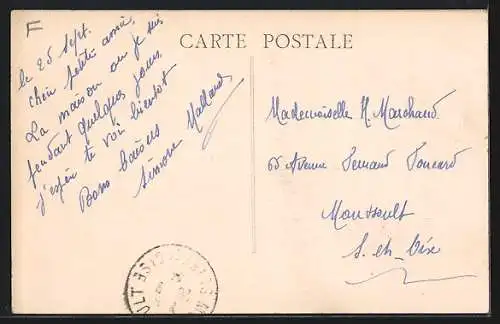 F
CARTE POSTALE
le 25 Sept.
chère petite amie,
La maison où je suis
pendant quelques jours,
j'espère te voir bientôt
Bons baisers
Simone Mallard
Mademoiselle H. Marchand
65 Avenue Fernand Foucard
Montsoult
S.-et-Oise